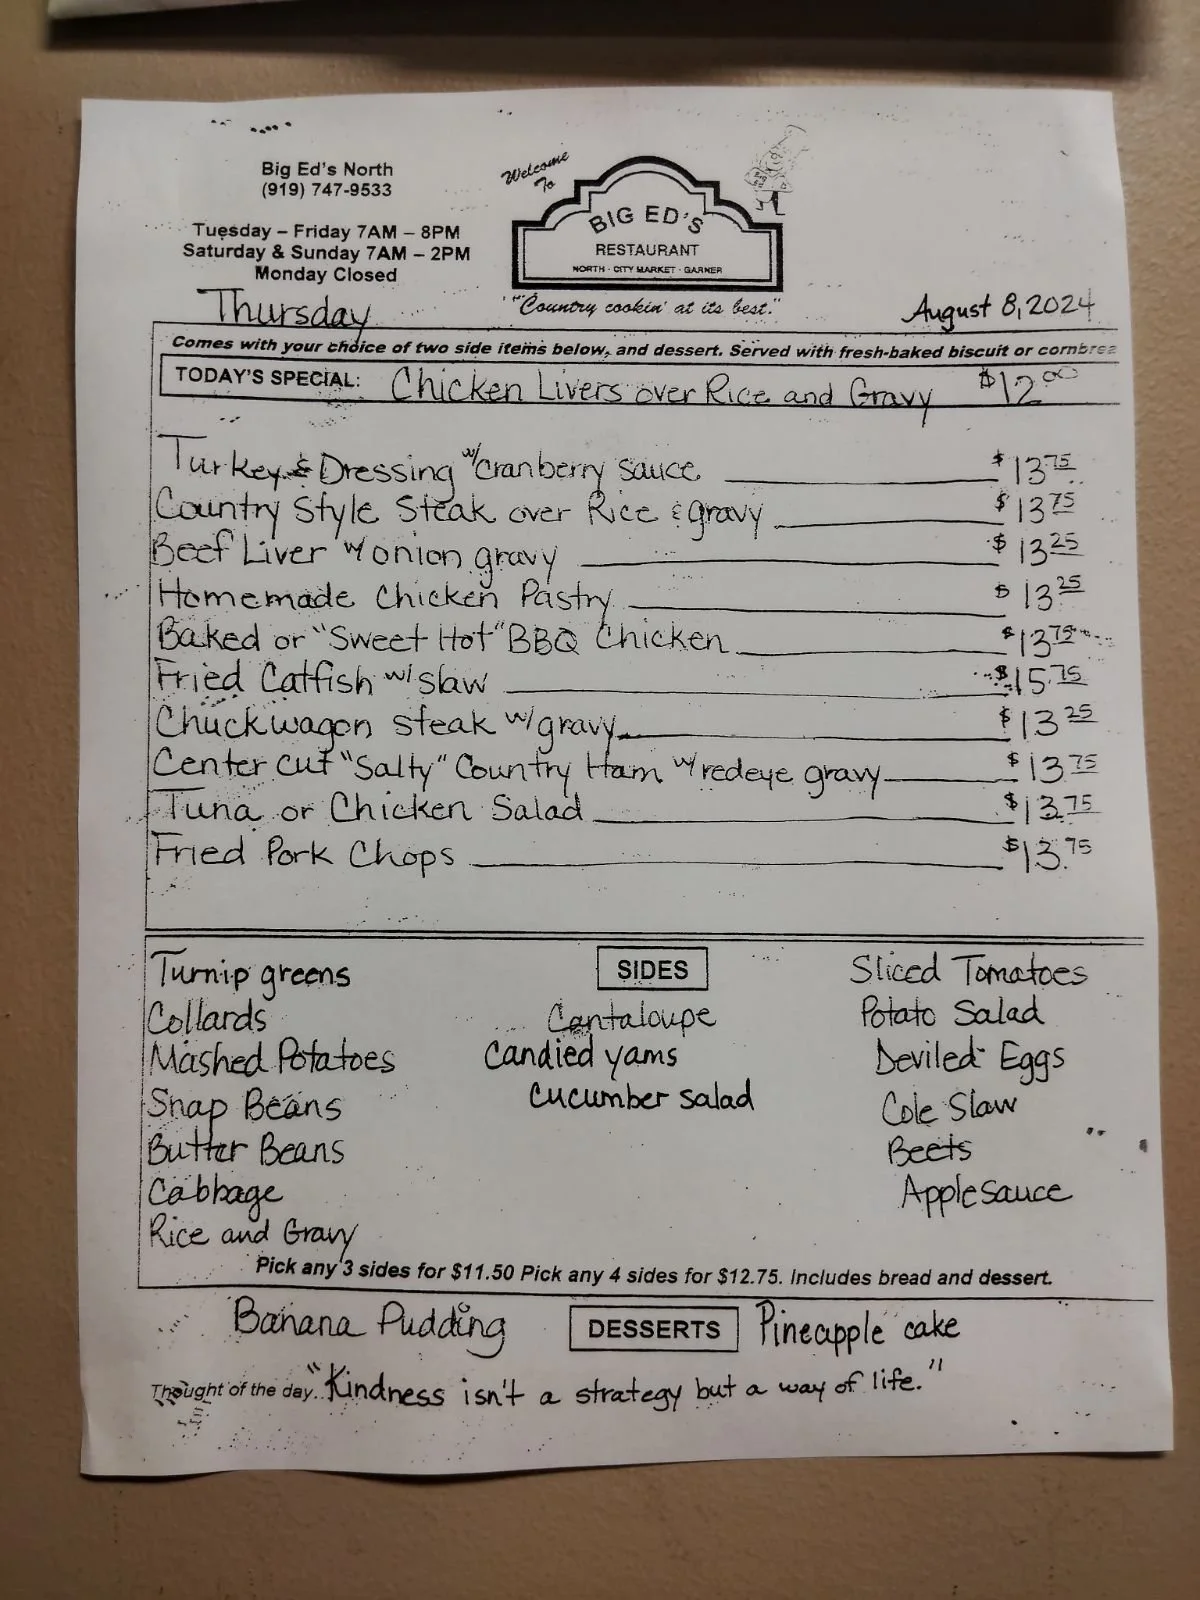 Big Ed's North
(919) 747-9533
Tuesday – Friday 7AM – 8PM
Saturday & Sunday 7AM – 2PM
Monday Closed
Welcome
To
BIG ED'S
RESTAURANT
NORTH · CITY MARKET · GARNER
"Country cookin' at its best."
Thursday
August 8, 2024
Comes with your choice of two side items below, and dessert. Served with fresh-baked biscuit or cornbrea
TODAY'S SPECIAL: Chicken Livers over Rice and Gravy $12.00
Turkey & Dressing w/cranberry sauce $13.75
Country Style Steak over Rice & gravy $13.75
Beef Liver w/ onion gravy $13.25
Homemade Chicken Pastry $13.25
Baked or "Sweet Hot" BBQ Chicken $13.75
Fried Catfish w/ slaw $15.75
Chuckwagon steak w/ gravy $13.25
Center cut "Salty" Country Ham w/ redeye gravy $13.75
Tuna or Chicken Salad $13.75
Fried Pork Chops $13.75
SIDES
Turnip greens
Collards
Mashed Potatoes
Snap Beans
Butter Beans
Cabbage
Rice and Gravy
Cantaloupe
Candied yams
Cucumber salad
Sliced Tomatoes
Potato Salad
Deviled Eggs
Cole Slaw
Beets
Applesauce
Pick any 3 sides for $11.50 Pick any 4 sides for $12.75. Includes bread and dessert.
Banana Pudding DESSERTS Pineapple cake
Thought of the day. "Kindness isn't a strategy but a way of life."